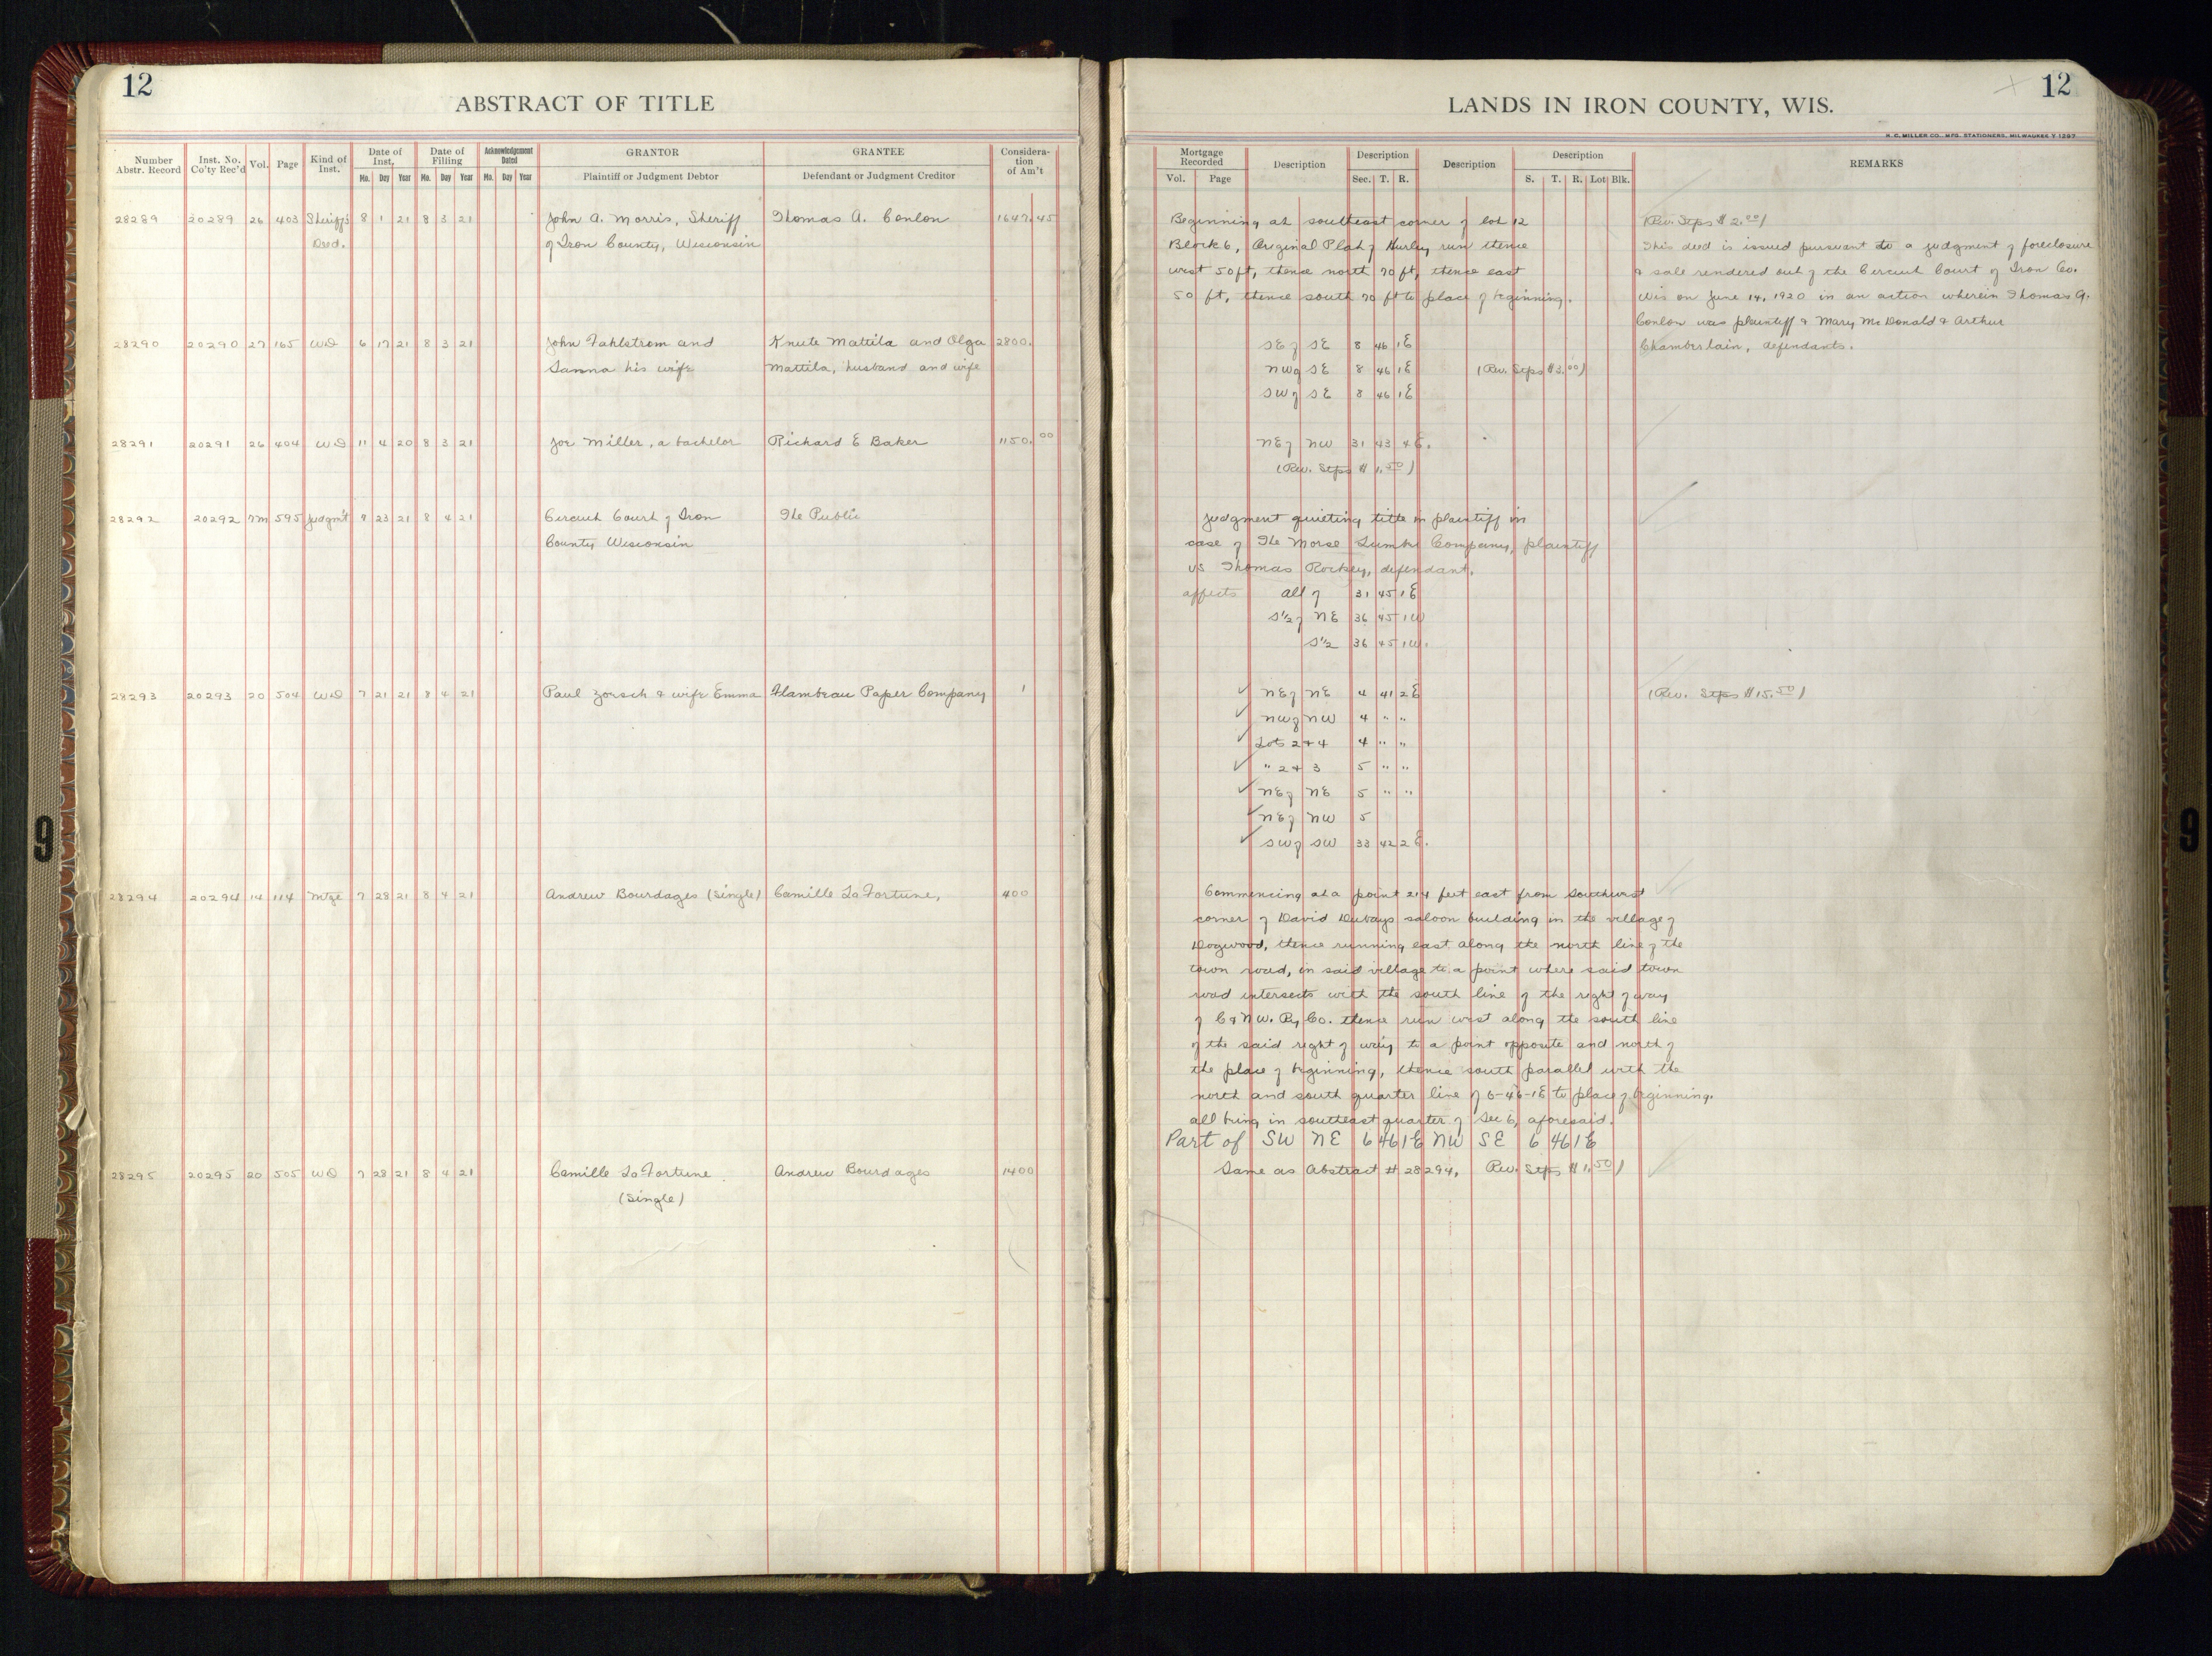 12
ABSTRACT OF TITLE
Number Abstr. Record
Inst. No. Co'ty Rec'd
Vol.
Page
Kind of Inst.
Date of Inst.
Mo. Day Year
Date of Filling
Mo. Day Year
Acknowledgement Dated
Mo. Day Year
GRANTOR
Plaintiff or Judgment Debtor
GRANTEE
Defendant or Judgment Creditor
Considera-
tion
of Am't
28289 20289 26 403 Sheriff's 8 1 21 8 3 21 John A. Morris, Sheriff Thomas A. Conlon 1647.45
Deed. of Iron County, Wisconsin
28290 20290 27 165 WD 6 17 21 8 3 21 John Fahlstrom and Knute Mattila and Olga 2800.
Sanna his wife Mattila, husband and wife
28291 20291 26 404 WD 11 4 20 8 3 21 Joe Miller, a bachelor Richard E Baker 1150.00
28292 20292 7M 595 Judgm't 7 23 21 8 4 21 Circuit Court of Iron The Public
County Wisconsin
28293 20293 20 504 WD 7 21 21 8 4 21 Paul Zoesch & wife Emma Flambeau Paper Company 1
28294 20294 14 114 Mtge 7 28 21 8 4 21 Andrew Bourdages (single) Camille LaFortune, 400
28295 20295 20 505 WD 7 28 21 8 4 21 Camille LaFortune Andrew Bourdages 1400
(Single)
12
LANDS IN IRON COUNTY, WIS.
H. C. MILLER CO., MFG. STATIONERS, MILWAUKEE Y 1297
Mortgage Recorded
Vol. Page
Description
Description
Sec. T. R.
Description
Description
S. T. R. Lot Blk.
REMARKS
Beginning at southeast corner of lot 12
Block 6, Original Plat of Hurley run thence
west 50 ft, thence north 70 ft, thence east
50 ft, thence south 70 ft to place of beginning.
(Rev. Stps $2.00)
This deed is issued pursuant to a judgment of foreclosure
& sale rendered out of the Circuit Court of Iron Co.
Wis on June 14, 1920 in an action wherein Thomas A.
Conlon was plaintiff & Mary McDonald & Arthur
Chamberlain, defendants.
SE of SE 8 46 1E
NW of SE 8 46 1E (Rev. Stps $3.00)
SW of SE 8 46 1E
NE of NW 31 43 4E.
(Rev. Stps $1.50)
Judgment quieting title in plaintiff in
case of The Morse Lumber Company, plaintiff
vs Thomas Rocksey, defendant.
affects all of 31 45 1E
S½ of NE 36 45 1W
S½ 36 45 1W.
NE of NE 4 41 2E (Rev. Stps $15.50)
NW of NW 4 " "
Lots 2 & 4 4 " "
" 2 & 3 5 " "
NE of NE 5 " "
NE of NW 5
SW of SW 33 42 2E.
Commencing at a point 214 feet east from southwest
corner of David Dubays saloon building in the village of
Dogwood, thence running east along the north line of the
town road, in said village to a point where said town
road intersects with the south line of the right of way
of C & N W. Ry Co. thence run west along the south line
of the said right of way to a point opposite and north of
the place of beginning, thence south parallel with the
north and south quarter line of 6-46-1E to place of beginning.
all being in southeast quarter of Sec 6, aforesaid.
Part of SW NE 6 46 1E NW SE 6 46 1E
Same as Abstract # 28294, Rev. Stps $1.50)
9
9